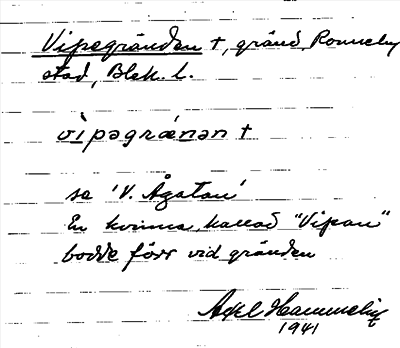 Vipegränden †, gränd, Ronneby
stad, Blek. l.
vìpəgræ̀nən †
se 'V. Ågatan'
En kvinna kallad "Vipan"
bodde förr vid gränden
Axel
1941